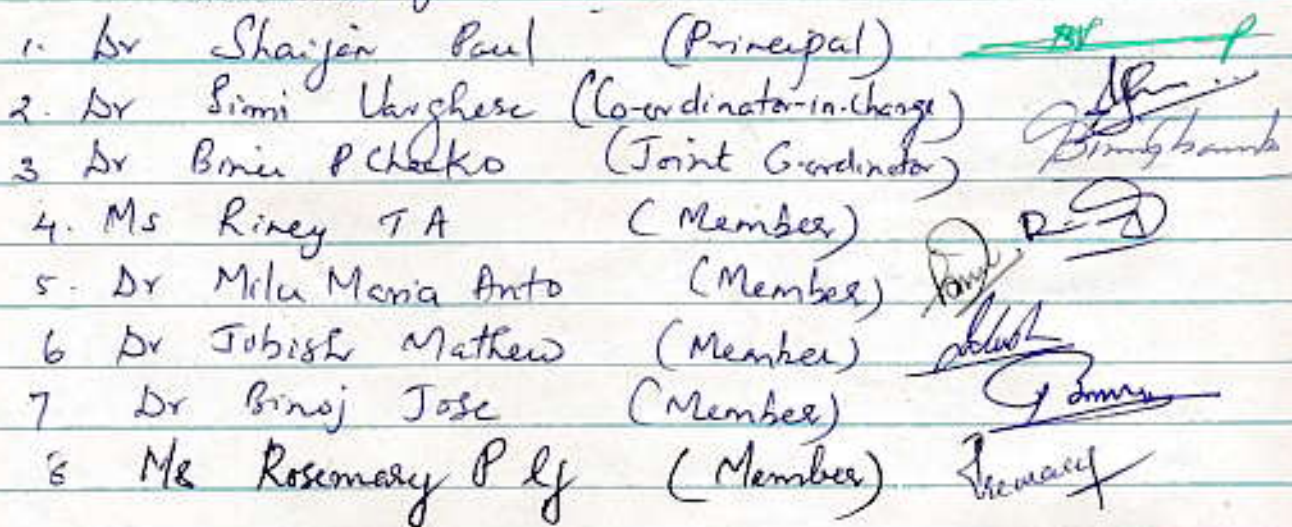 1. Dr Shaijan Paul (Principal)
2. Dr Simi Varghese (Co-ordinator-in-Charge)
3 Dr Binu P Chacko (Joint Co-ordinator)
4. Ms Riney T A (Member)
5. Dr Milu Maria Anto (Member)
6 Dr Jobish Mathew (Member)
7 Dr Binoj Jose (Member)
8 Ms Rosemary P (Member)